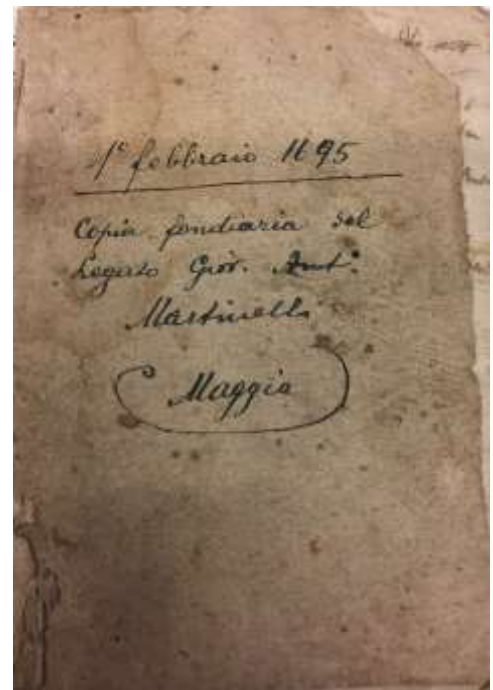 1º febbraio 1695
Copia fondiaria del
Legato Giov. Antº
Martinelli
Maggio